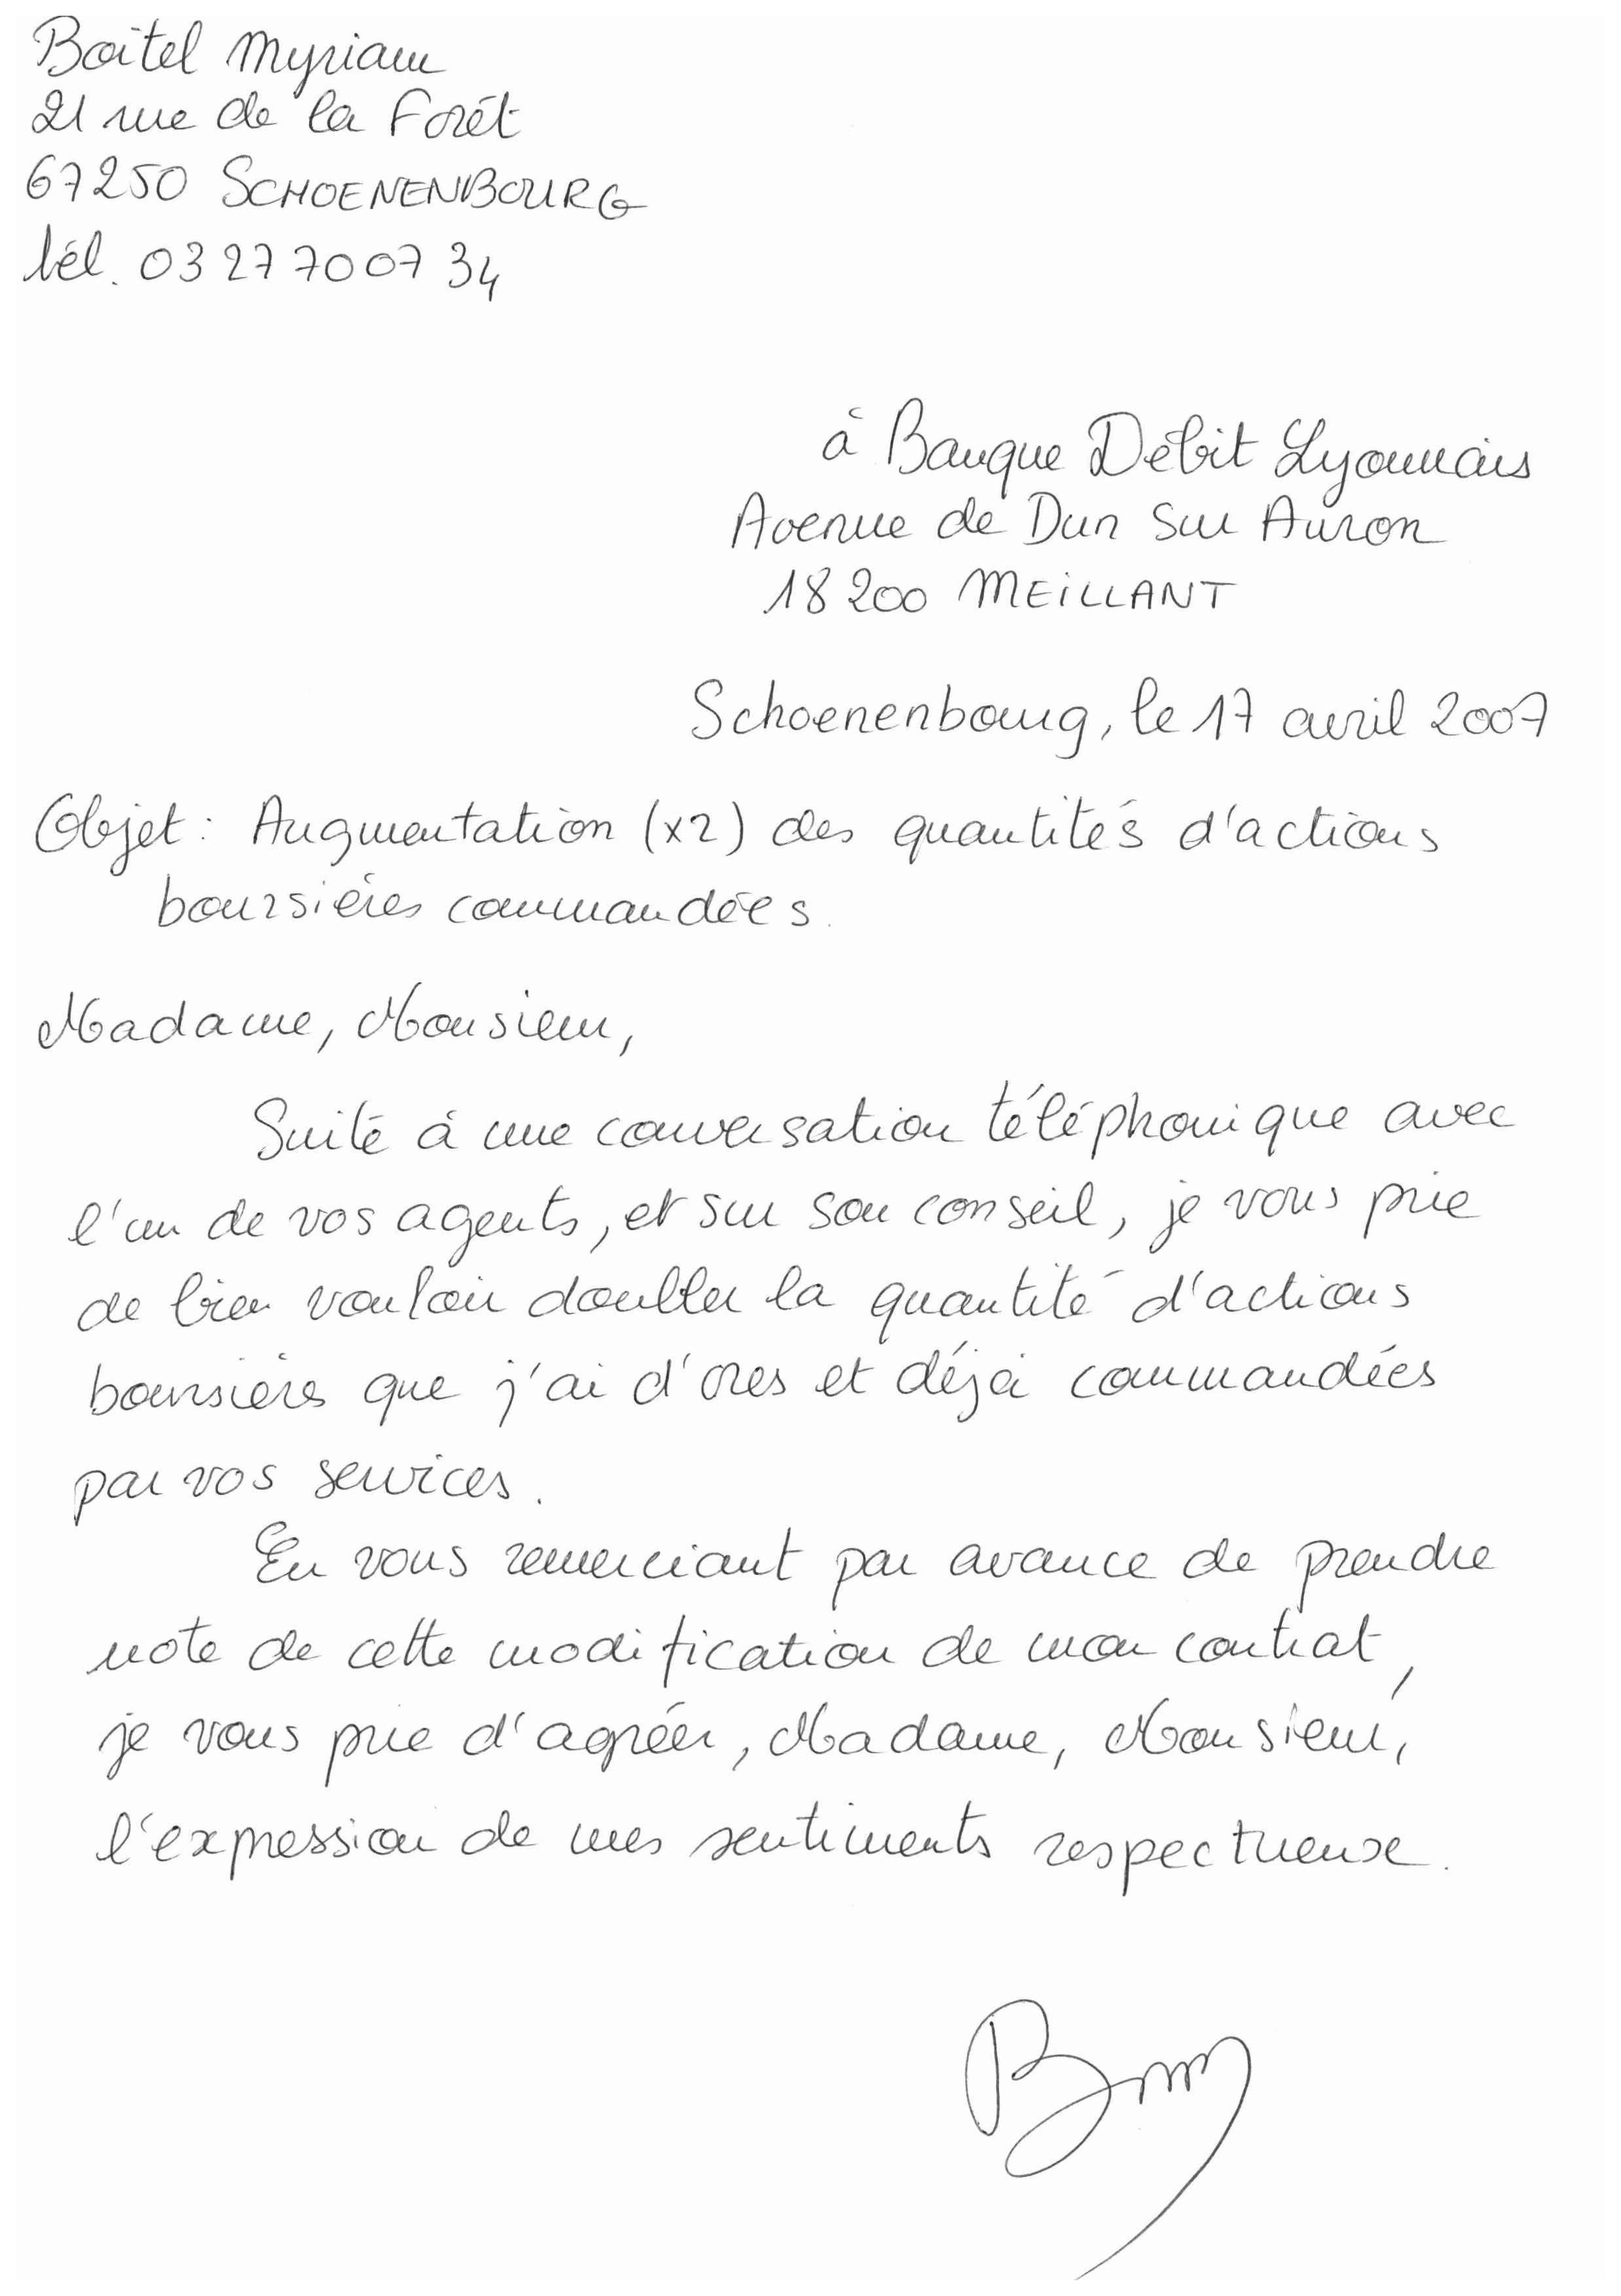 Boitel Myriam
21 rue de la Forêt
67250 SCHOENENBOURG
tél. 03 27 70 07 34
à Banque Débit Lyonnais
Avenue de Dun Sur Auron
18200 MEILLANT
Schoenenbourg, le 17 avril 2007
Objet : Augmentation (x2) des quantités d'actions
boursières commandées.
Madame, Monsieur,
Suite à une conversation téléphonique avec
l'un de vos agents, et sur son conseil, je vous prie
de bien vouloir doubler la quantité d'actions
boursières que j'ai d'ores et déjà commandées
par vos services.
En vous remerciant par avance de prendre
note de cette modification de mon contrat,
je vous prie d'agréer, Madame, Monsieur,
l'expression de mes sentiments respectueux.